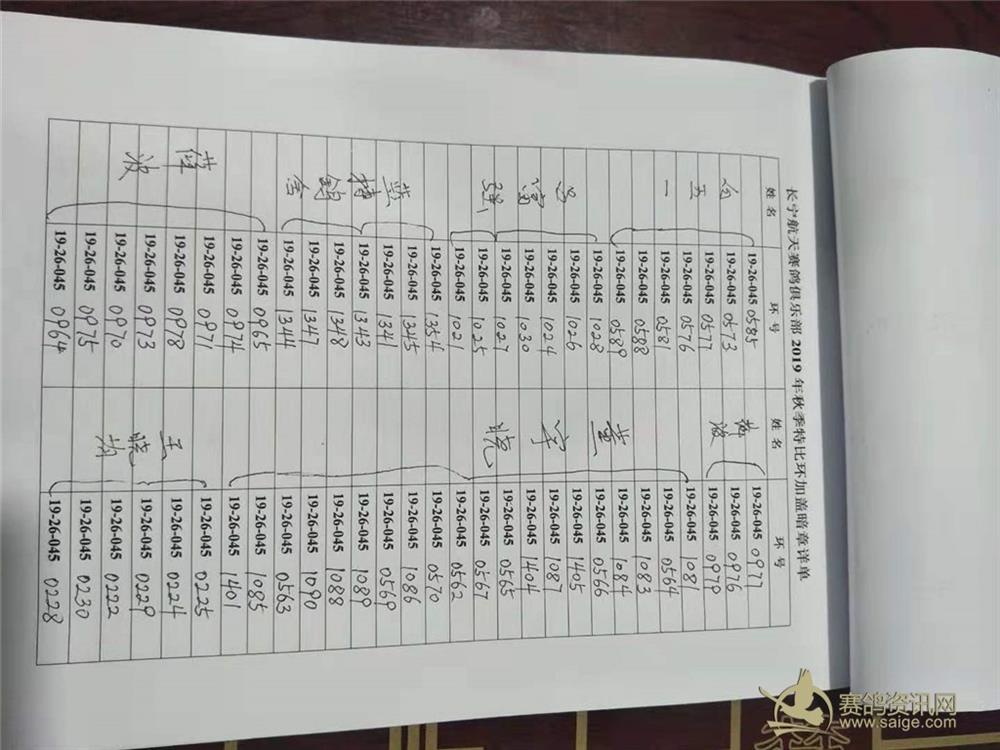 长宁航天赛鸽俱乐部2019年秋季特比环加盖暗章详单
姓名 环号 姓名 环号
19-26-045 0585 19-26-045 0977
19-26-045 0573 19-26-045 0976
五 19-26-045 0577 波 19-26-045 0979
19-26-045 0576 19-26-045 1081
一 19-26-045 0581 19-26-045 0564
19-26-045 0588 19-26-045 1083
19-26-045 0589 19-26-045 1084
19-26-045 1028 董 19-26-045 0566
吕 19-26-045 1026 19-26-045 1405
19-26-045 1024 宇 19-26-045 1087
富 19-26-045 1030 19-26-045 1404
19-26-045 1027 19-26-045 0565
强 19-26-045 1025 19-26-045 0567
19-26-045 1021 19-26-045 0562
19-26-045 1354 19-26-045 0570
19-26-045 1345 19-26-045 1086
19-26-045 1341 19-26-045 0569
19-26-045 1343 19-26-045 1089
19-26-045 1348 19-26-045 1088
19-26-045 1347 19-26-045 1090
舍 19-26-045 1344 19-26-045 0563
19-26-045 0965 19-26-045 1085
19-26-045 0974 19-26-045 1401
19-26-045 0971 19-26-045 0225
薛 19-26-045 0978 王 19-26-045 0224
19-26-045 0973 晓 19-26-045 0229
波 19-26-045 0970 19-26-045 0222
19-26-045 0975 19-26-045 0230
19-26-045 0964 19-26-045 0228
赛鸽资讯网
www.saige.com